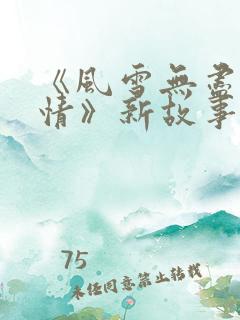 《風雪無盡
情》新故事
75
未經同意禁止轉載